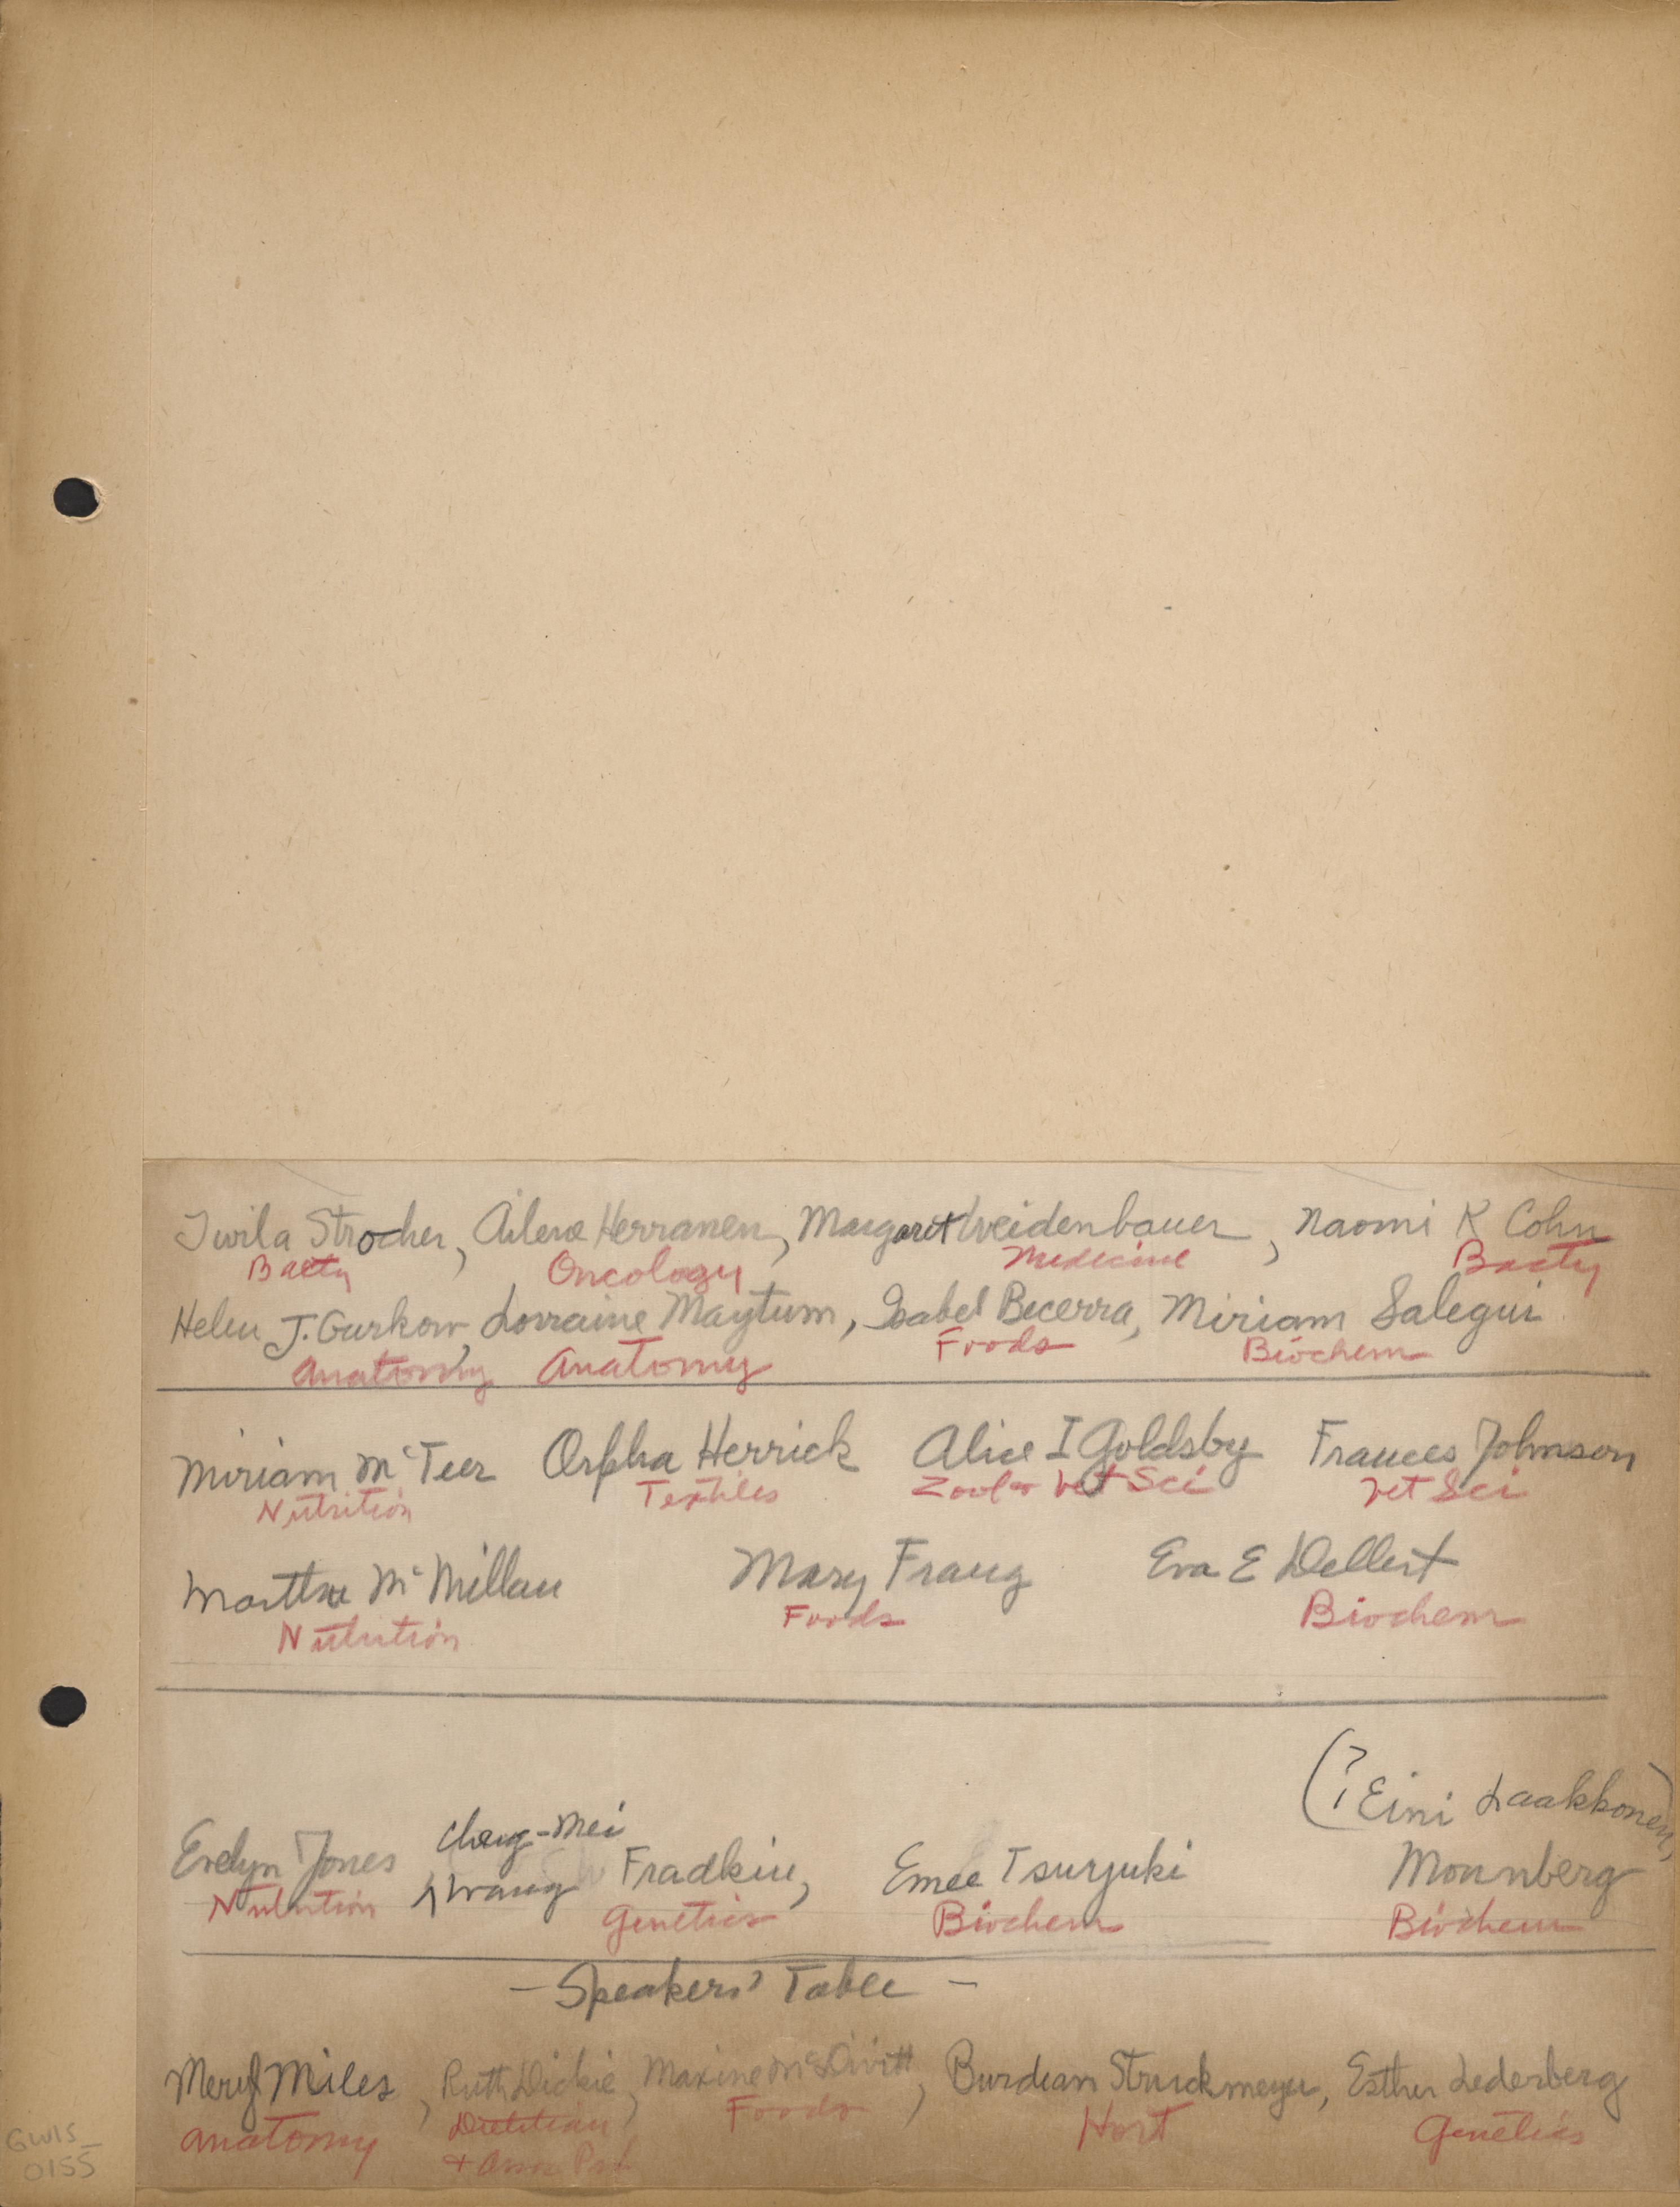 Twila Strocher, Ailene Herranen, Margaret Weidenbauer, Naomi K Cohn
Bacty Oncology Medicine Bacty
Helen J. Gurkow, Lorraine Maytum, Isabel Becerra, Miriam Salegui
Anatomy Anatomy Foods Biochem
Miriam McTeer Orpha Herrick Alice I Goldsby Frances Johnson
Nutrition Textiles Zool + Vet Sci Vet Sci
Martha McMillan Mary Frang Eva E Dellert
Nutrition Foods Biochem
(? Eini Laakkonen)
Cheng-Mei
Evelyn Jones Wang Fradkin, Emee Tsuyuki Monnberg
Nutrition Genetics Biochem Biochem
- Speakers' Table -
Meryl Miles, Ruth Dickie, Maxine McDivitt, Burdean Struckmeyer, Esther Lederberg
Anatomy Dietitian Foods Hort Genetics
+ Assoc Prof
GWIS_
0155